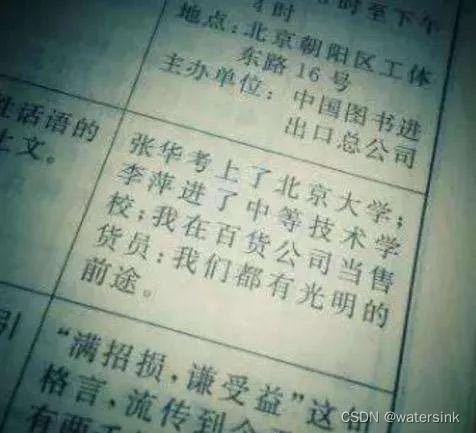 时至下午
4时
地点：北京朝阳区工体
东路16号
主办单位：中国图书进
出口总公司
话语的
上文。
张华考上了北京大学；
李萍进了中等技术学
校；我在百货公司当售
货员：我们都有光明的
前途。
引
“满招损，谦受益”这句
格言，流传到今
有两千
CSDN @watersink